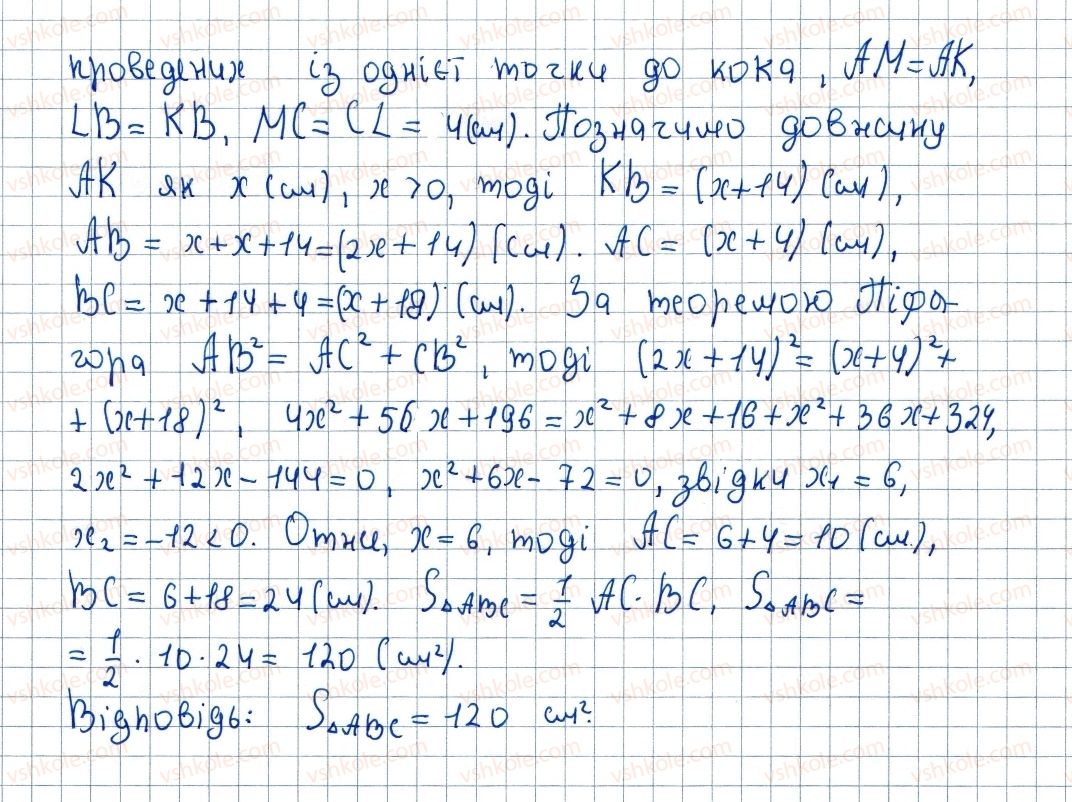 проведених із однієї точки до кола, AM = AK,
LB = KB, MC = CL = 4(см). Позначимо довжину
AK як x (см), x > 0, тоді KB = (x+14) (см),
AB = x + x + 14 = (2x + 14) (см). AC = (x + 4) (см),
BC = x + 14 + 4 = (x + 18) (см). За теоремою Піфа-
гора AB² = AC² + CB², тоді (2x + 14)² = (x+4)² +
+ (x+18)², 4x² + 56x + 196 = x² + 8x + 16 + x² + 36x + 324,
2x² + 12x - 144 = 0, x² + 6x - 72 = 0, звідки x₁ = 6,
x₂ = -12 < 0. Отже, x = 6, тоді AC = 6 + 4 = 10 (см),
BC = 6 + 18 = 24 (см). S△ABC = 1/2 AC · BC, S△ABC =
= 1/2 · 10 · 24 = 120 (см²).
Відповідь: S△ABC = 120 см².